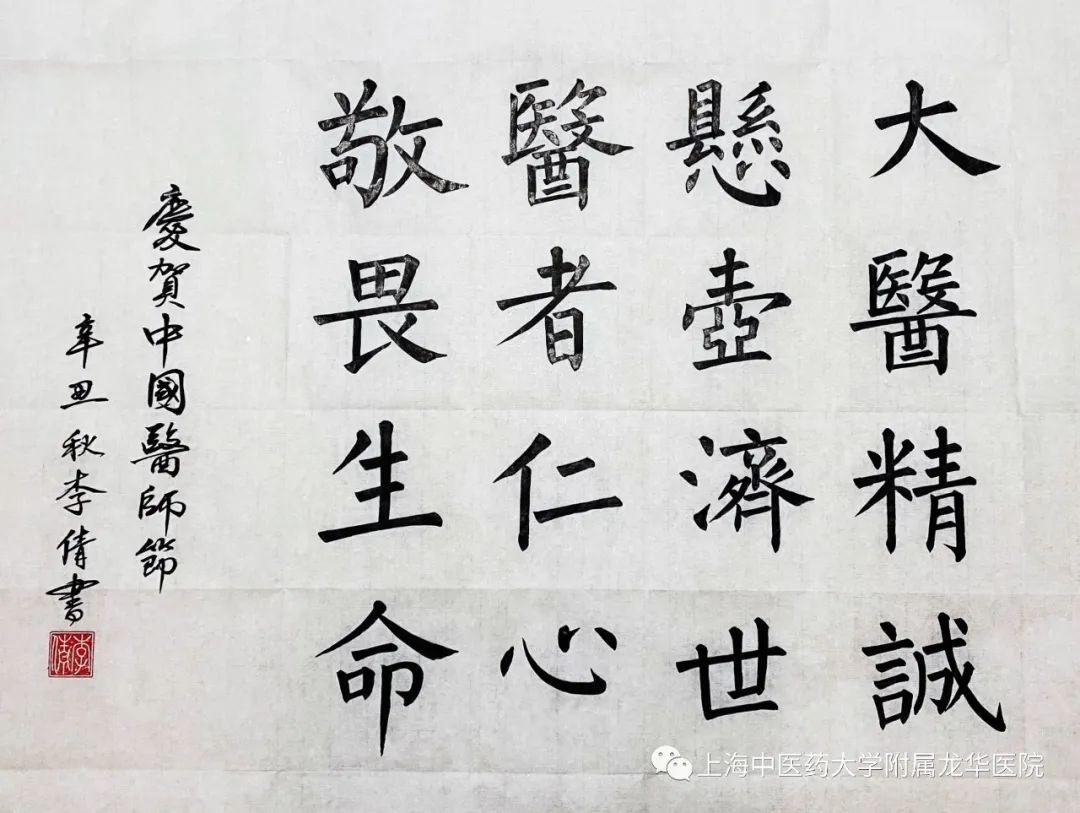 大醫精誠
懸壺濟世
醫者仁心
敬畏生命
慶賀中國醫師節
辛丑秋李倩書
李倩
上海中医药大学附属龙华医院